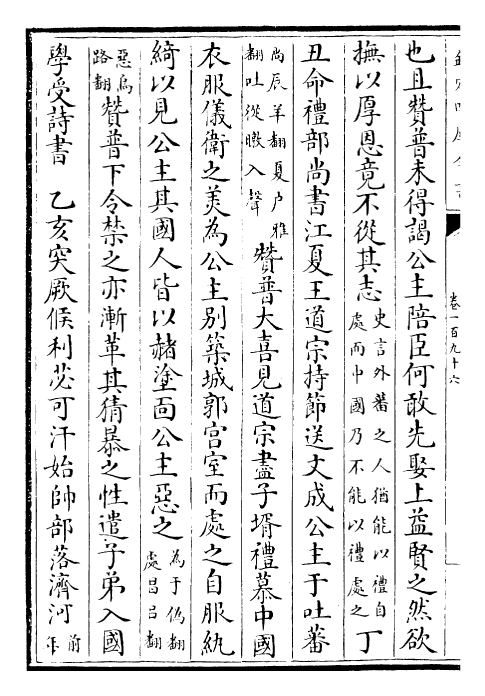 卷一百九十六
也且贊普未得謁公主陪臣何敢先娶上益賢之然欲
撫以厚恩竟不從其志史言外蕃之人猶能以禮自處而中國乃不能以禮處之丁
丑命禮部尚書江夏王道宗持節送文成公主于吐蕃
尚辰羊翻夏户雅翻吐從暾入聲贊普大喜見道宗盡子壻禮慕中國
衣服儀衛之美為公主别築城郭宫室而處之自服紈
綺以見公主其國人皆以赭塗面公主惡之為于偽翻處昌吕翻
惡烏路翻贊普下令禁之亦漸革其猜暴之性遣子弟入國
學受詩書 乙亥突厥俟利苾可汗始帥部落濟河前年